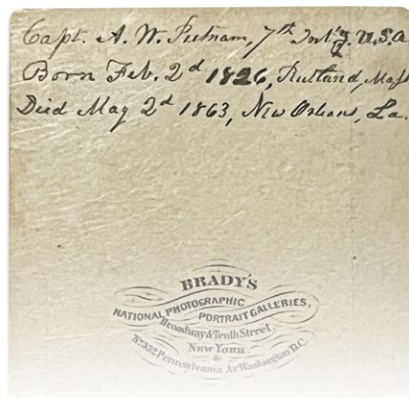 Capt. A. W. Putnam, 7th Inf'y. U.S.A
Born Feb. 2d 1826, Rutland, Mass
Died May 2d 1863, New Orleans, La.
BRADY'S
NATIONAL PHOTOGRAPHIC
PORTRAIT GALLERIES,
Broadway & Tenth Street
NEW YORK
&
No. 352 Pennsylvania Av. Washington D.C.